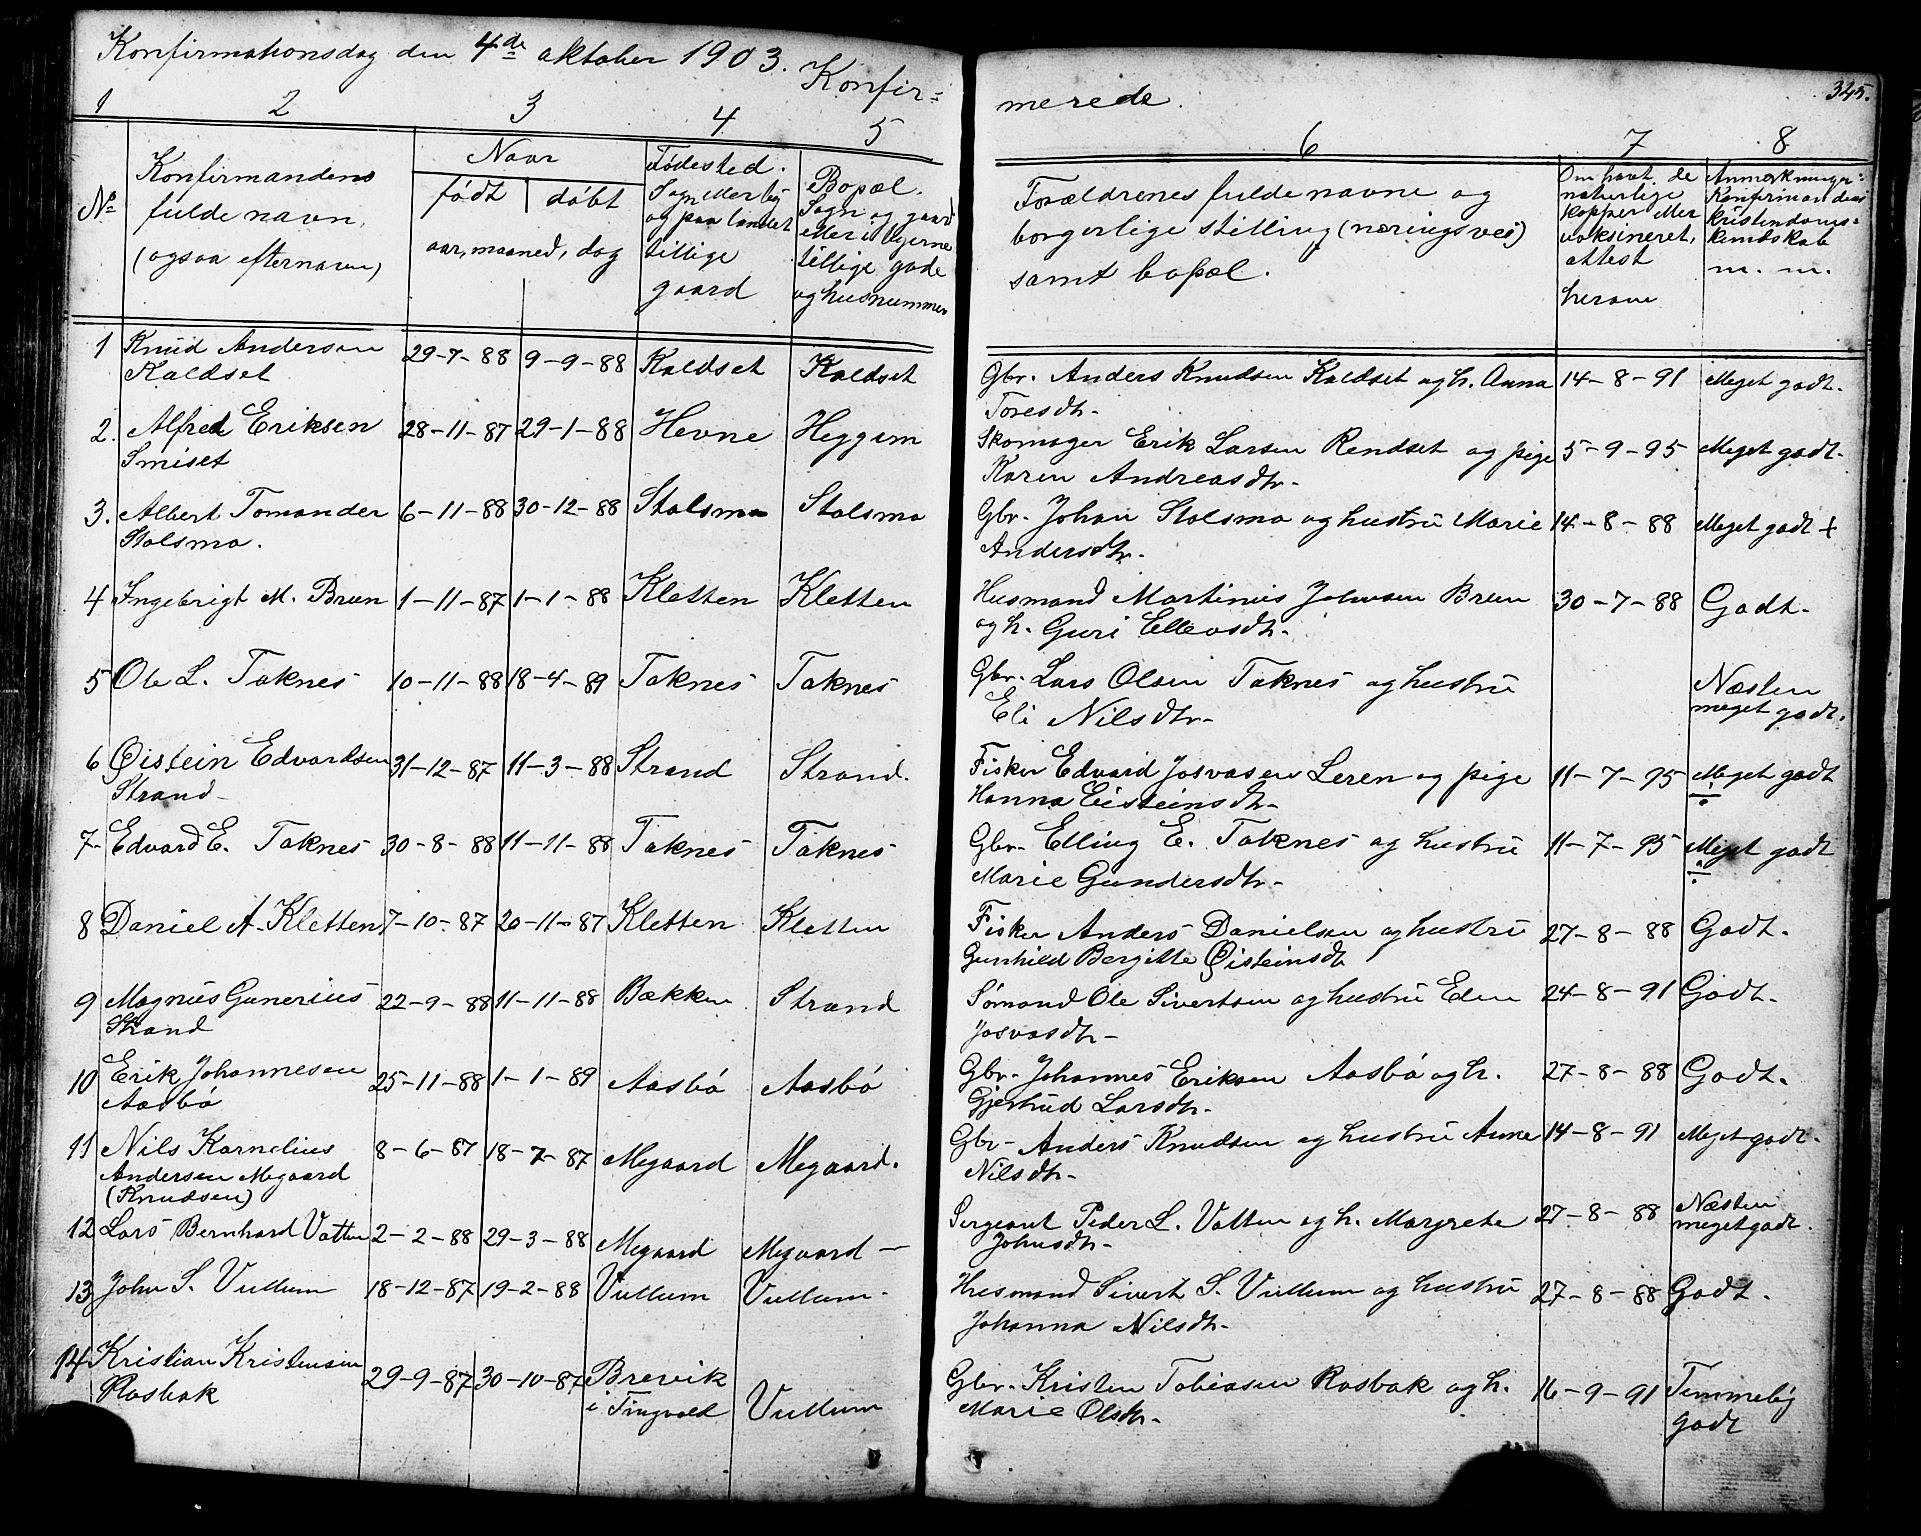 Konfirmationsdag den 4de oktober 1903. Konfir=
1 2 3 4 5
No Konfirmandens fulde navn, (ogsaa efternavn)
Naar
født | døbt
aar, maaned, dag
Fødested. Sogn eller by og paa landet tillige gaard
Bopæl. Sogn og gaard eller i byerne tillige gade og husnummer
1 Knud Andersen 29-7-88 9-9-88 Kaldset Kaldset
Kaldset
2. Alfred Eriksen 28-11-87 29-1-88 Hevne Heggem
Smiset
3. Albert Tomander 6-11-88 30-12-88 Stolsmo Stolsmo
Stolsmo.
4 Ingebrigt M. Brun 1-11-87 1-1-88 Kletten Kletten
5 Ole L. Taknes 10-11-88 18-4-89 Taknes Taknes
6 Øistein Edvardsen 31-12-87 11-3-88 Strand Strand.
Strand-
7- Edvard E. Taknes 30-8-88 11-11-88 Taknes Taknes
8 Daniel A. Kletten 7-10-87 20-11-87 Kletten Kletten
9 Magnus Gunerius 22-9-88 11-11-88 Bækken Strand
Strand
10 Erik Johannesen 25-11-88 1-1-89 Aasbø Aasbø
Aasbø
11 Nils Kornelius 8-6-87 18-7-87 Megaard Megaard.
Andersen Megaard
(Knudsen)
12 Lars Bernhard Vatten 2-2-88 29-3-88 Megaard Megaard -
13 John S. Vullum 18-12-87 19-2-88 Vullum Vullum-
14 Kristian Kristensen 29-9-87 30-10-87 Brevik Vullum
Rosbak i Tingvold
345.
merede.
6 7 8
Forældrenes fulde navne og
borgerlige stilling (næringsvei)
samt bopæl.
Om havt de naturlige kopper eller vaksineret, attest herom
Anmerkninger: Konfirmandens kristendoms= kundskab m. m.
Gbr. Anders Knudsen Kaldset og h. Anna 14-8-91 Meget godt.
Toresdtr-
Skomager Erik Larsen Rendset og pige 5-9-95 Meget godt-
Karen Andreasdtr-
Gbr- Johan Stolsmo og hustru Marie 14-8-88 Meget godt +
Andersdtr-
Husmand Martinus Johnsen Bruun 30-7-88 Godt-
og h. Guri Ellevsdtr-
Gbr- Lars Olsen Taknes og hustru Næsten
Eli Nilsdtr- meget godt.
Fisker Edvard Josvasen Leren og pige 11-7-95 Meget godt ÷
Hanna Eisteinsdtr-
Gbr- Elling E. Taknes og hustru 11-7-95 Meget godt ÷
Marie Gundersdtr-
Fisker Anders Danielsen og hustru 27-8-88 Godt.
Gunhild Bergitte Øisteinsdt
Sømand Ole Sivertsen og hustru Elen 24-8-91 Godt.
Josvasdtr-
Gbr- Johannes Eriksen Aasbø og h. 27-8-88 Godt.
Gjertrud Larsdtr-
Gbr- Anders Knudsen og hustru Anne 14-8-91 Meget godt-
Nilsdtr-
Sergeant Peder L. Vatten og h. Margrete 27-8-88 Næsten
Johnsdtr- meget godt.
Husmand Sivert S. Vullum og hustru 27-8-88 Godt.
Johanna Nilsdtr-
Gbr- Kristen Tobiasen Rosbak og h. 16-9-91 Temmelig
Marie Olsdtr- godt